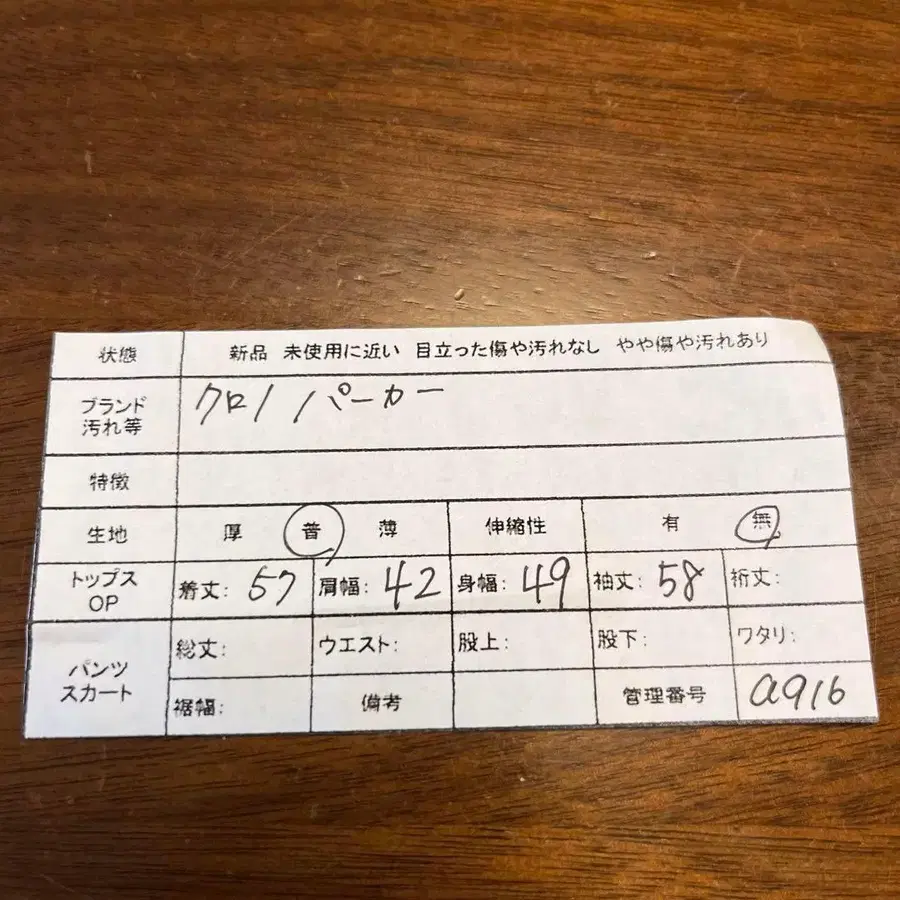 状態 新品 未使用に近い 目立った傷や汚れなし やや傷や汚れあり
ブランド 汚れ等 クロノ パーカー
特徴
生地 厚 普 薄 伸縮性 有 無
トップス OP 着丈: 57 肩幅: 42 身幅: 49 袖丈: 58 裄丈:
パンツ スカート 総丈: ウエスト: 股上: 股下: ワタリ:
裾幅: 備考 管理番号 a916